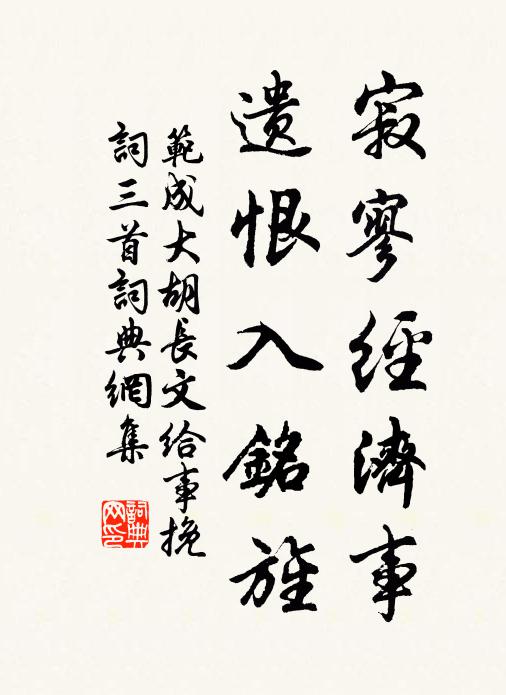 寂寥經濟事
遺恨入銘旌
範成大胡長文給事挽
詞三首詞典網集
詞典
网印